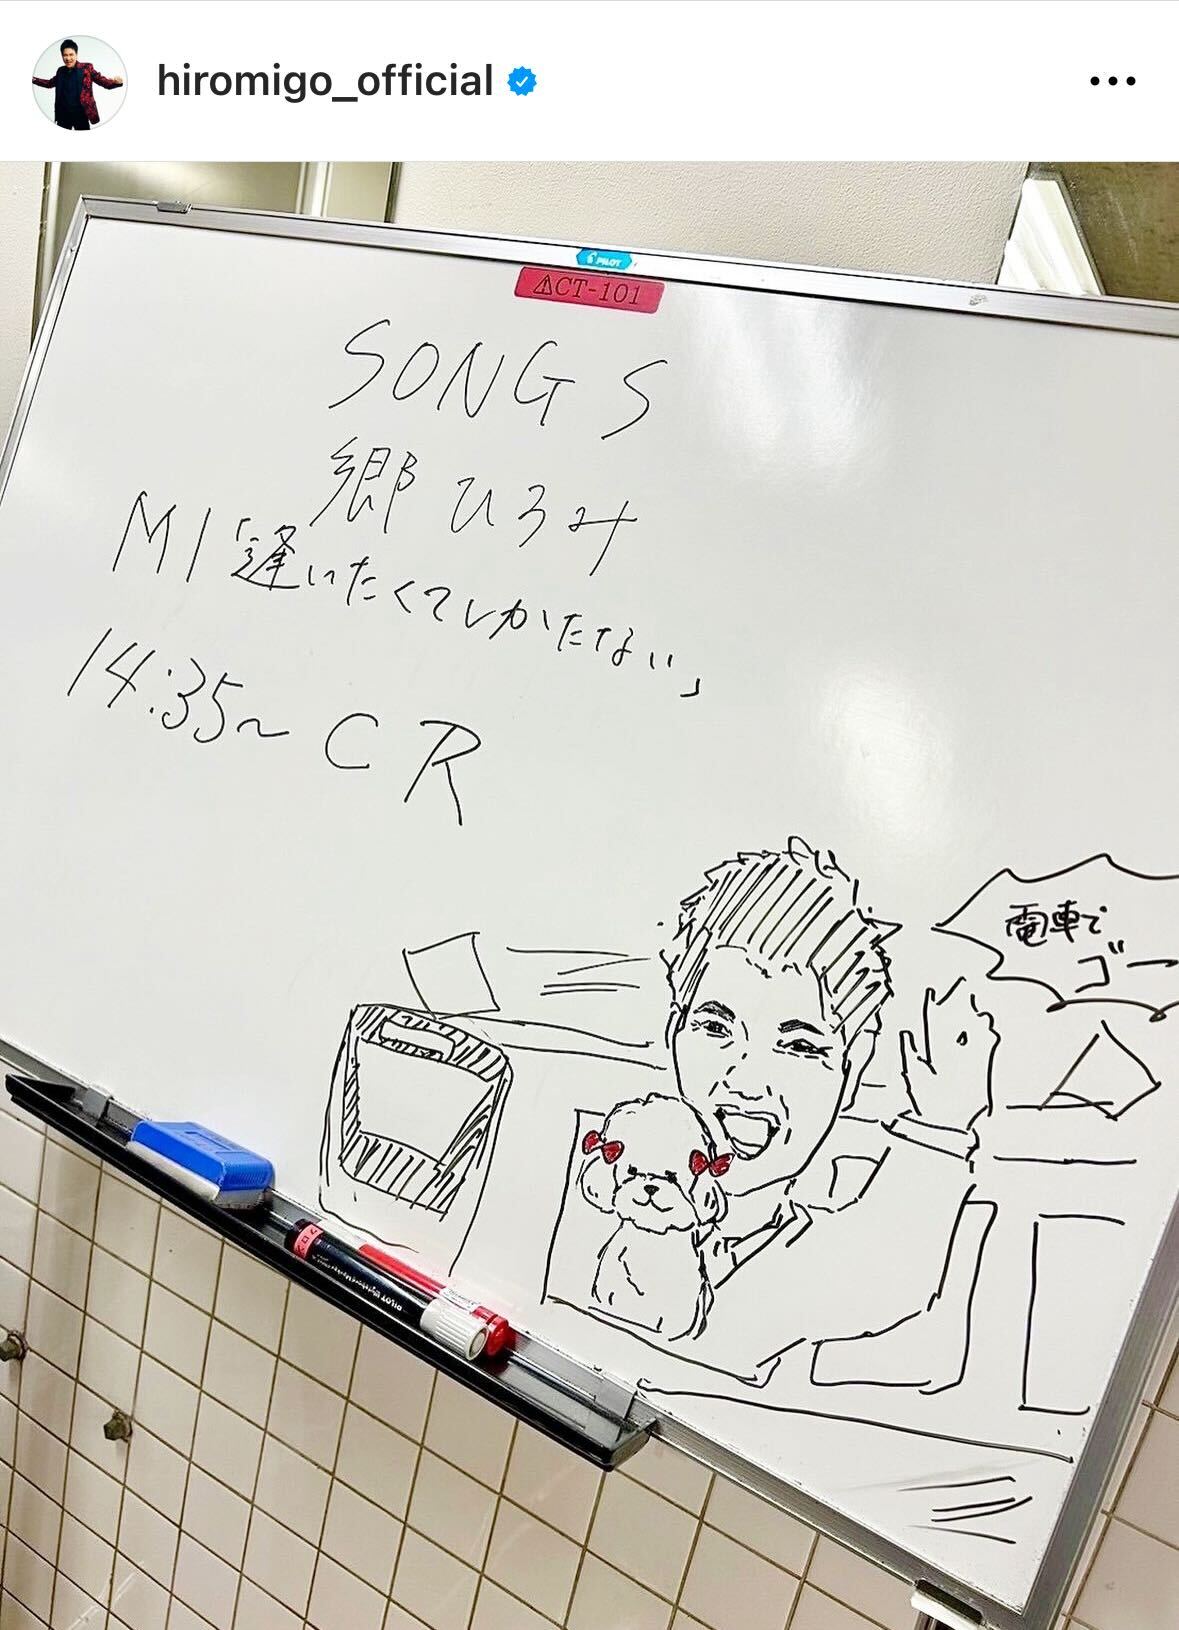 hiromigo_official
PILOT
ACT-101
SONGS
郷ひろみ
M1「逢いたくてしかたない」
14:35~ CR
電車で
ゴー
PILOT